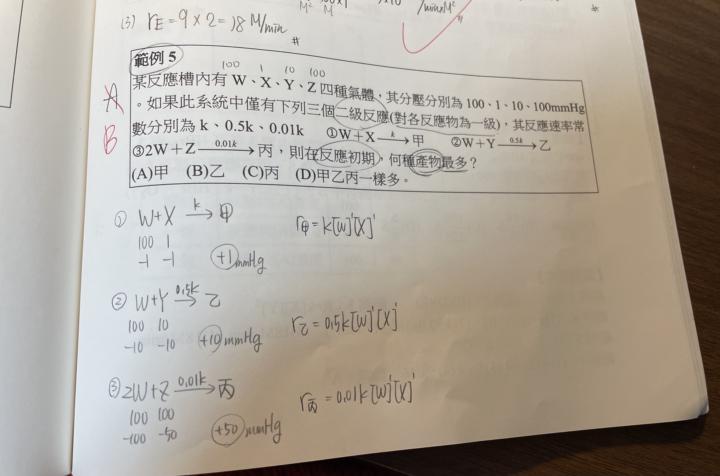 (3) rE = 9 × 2 = 18 M/min
#
範例 5
100 1 10 100
某反應槽內有 W、X、Y、Z 四種氣體,其分壓分別為 100、1、10、100mmHg
A
。如果此系統中僅有下列三個二級反應(對各反應物為一級),其反應速率常
B
數分別為 k、0.5k、0.01k ①W+X —k→ 甲 ②W+Y —0.5k→ 乙
③2W+Z —0.01k→ 丙,則在反應初期,何種產物最多?
(A)甲 (B)乙 (C)丙 (D)甲乙丙一樣多。
① W+X —k→ 甲 r甲=k[W]¹[X]¹
100 1
-1 -1 +1 mmHg
② W+Y —0.5k→ 乙 r乙=0.5k[W]¹[X]¹
100 10
-10 -10 +10 mmHg
③ 2W+Z —0.01k→ 丙 r丙=0.01k[W]¹[X]¹
100 100
-100 -50 +50 mmHg